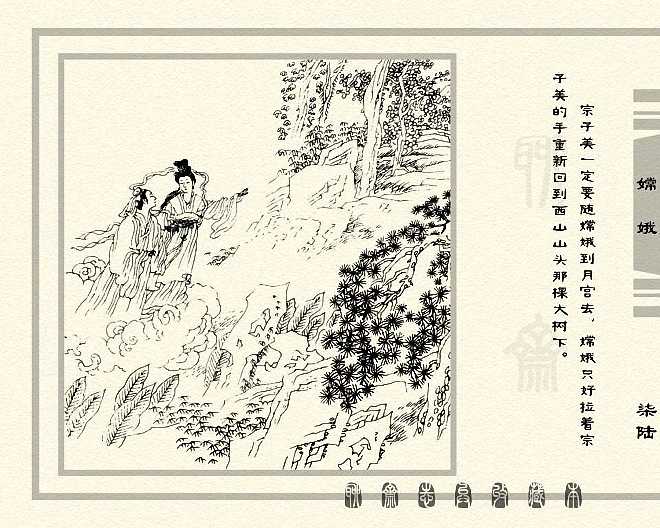 宗子美一定要随嫦娥到月宫去，嫦娥只好拉着宗
子美的手重新回到西山山头那棵大树下。
嫦娥
柒陆
聊斋志异收藏本